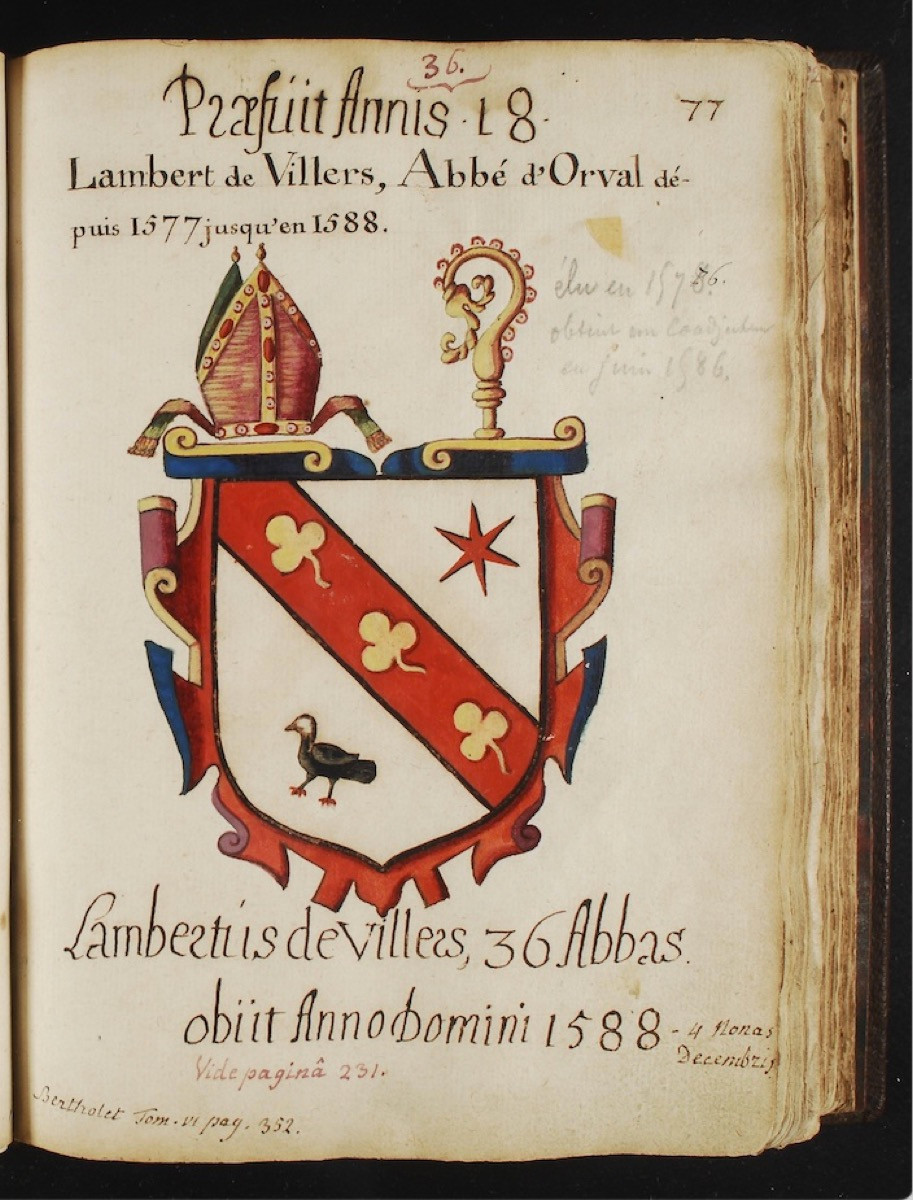 36.
Præfüit Annis · 18 ·
77
Lambert de Villers, Abbé d'Orval dé-
puis 1577 jusqu'en 1588.
élu en 1576.
obtint un Coadjuteur
en juin 1586.
Lambertus de Villers, 36 Abbas.
obiit Anno Domini 1588 - 4 Nonas
Decembris
Vide paginâ 231.
Bertholet Tom. VI pag. 352.